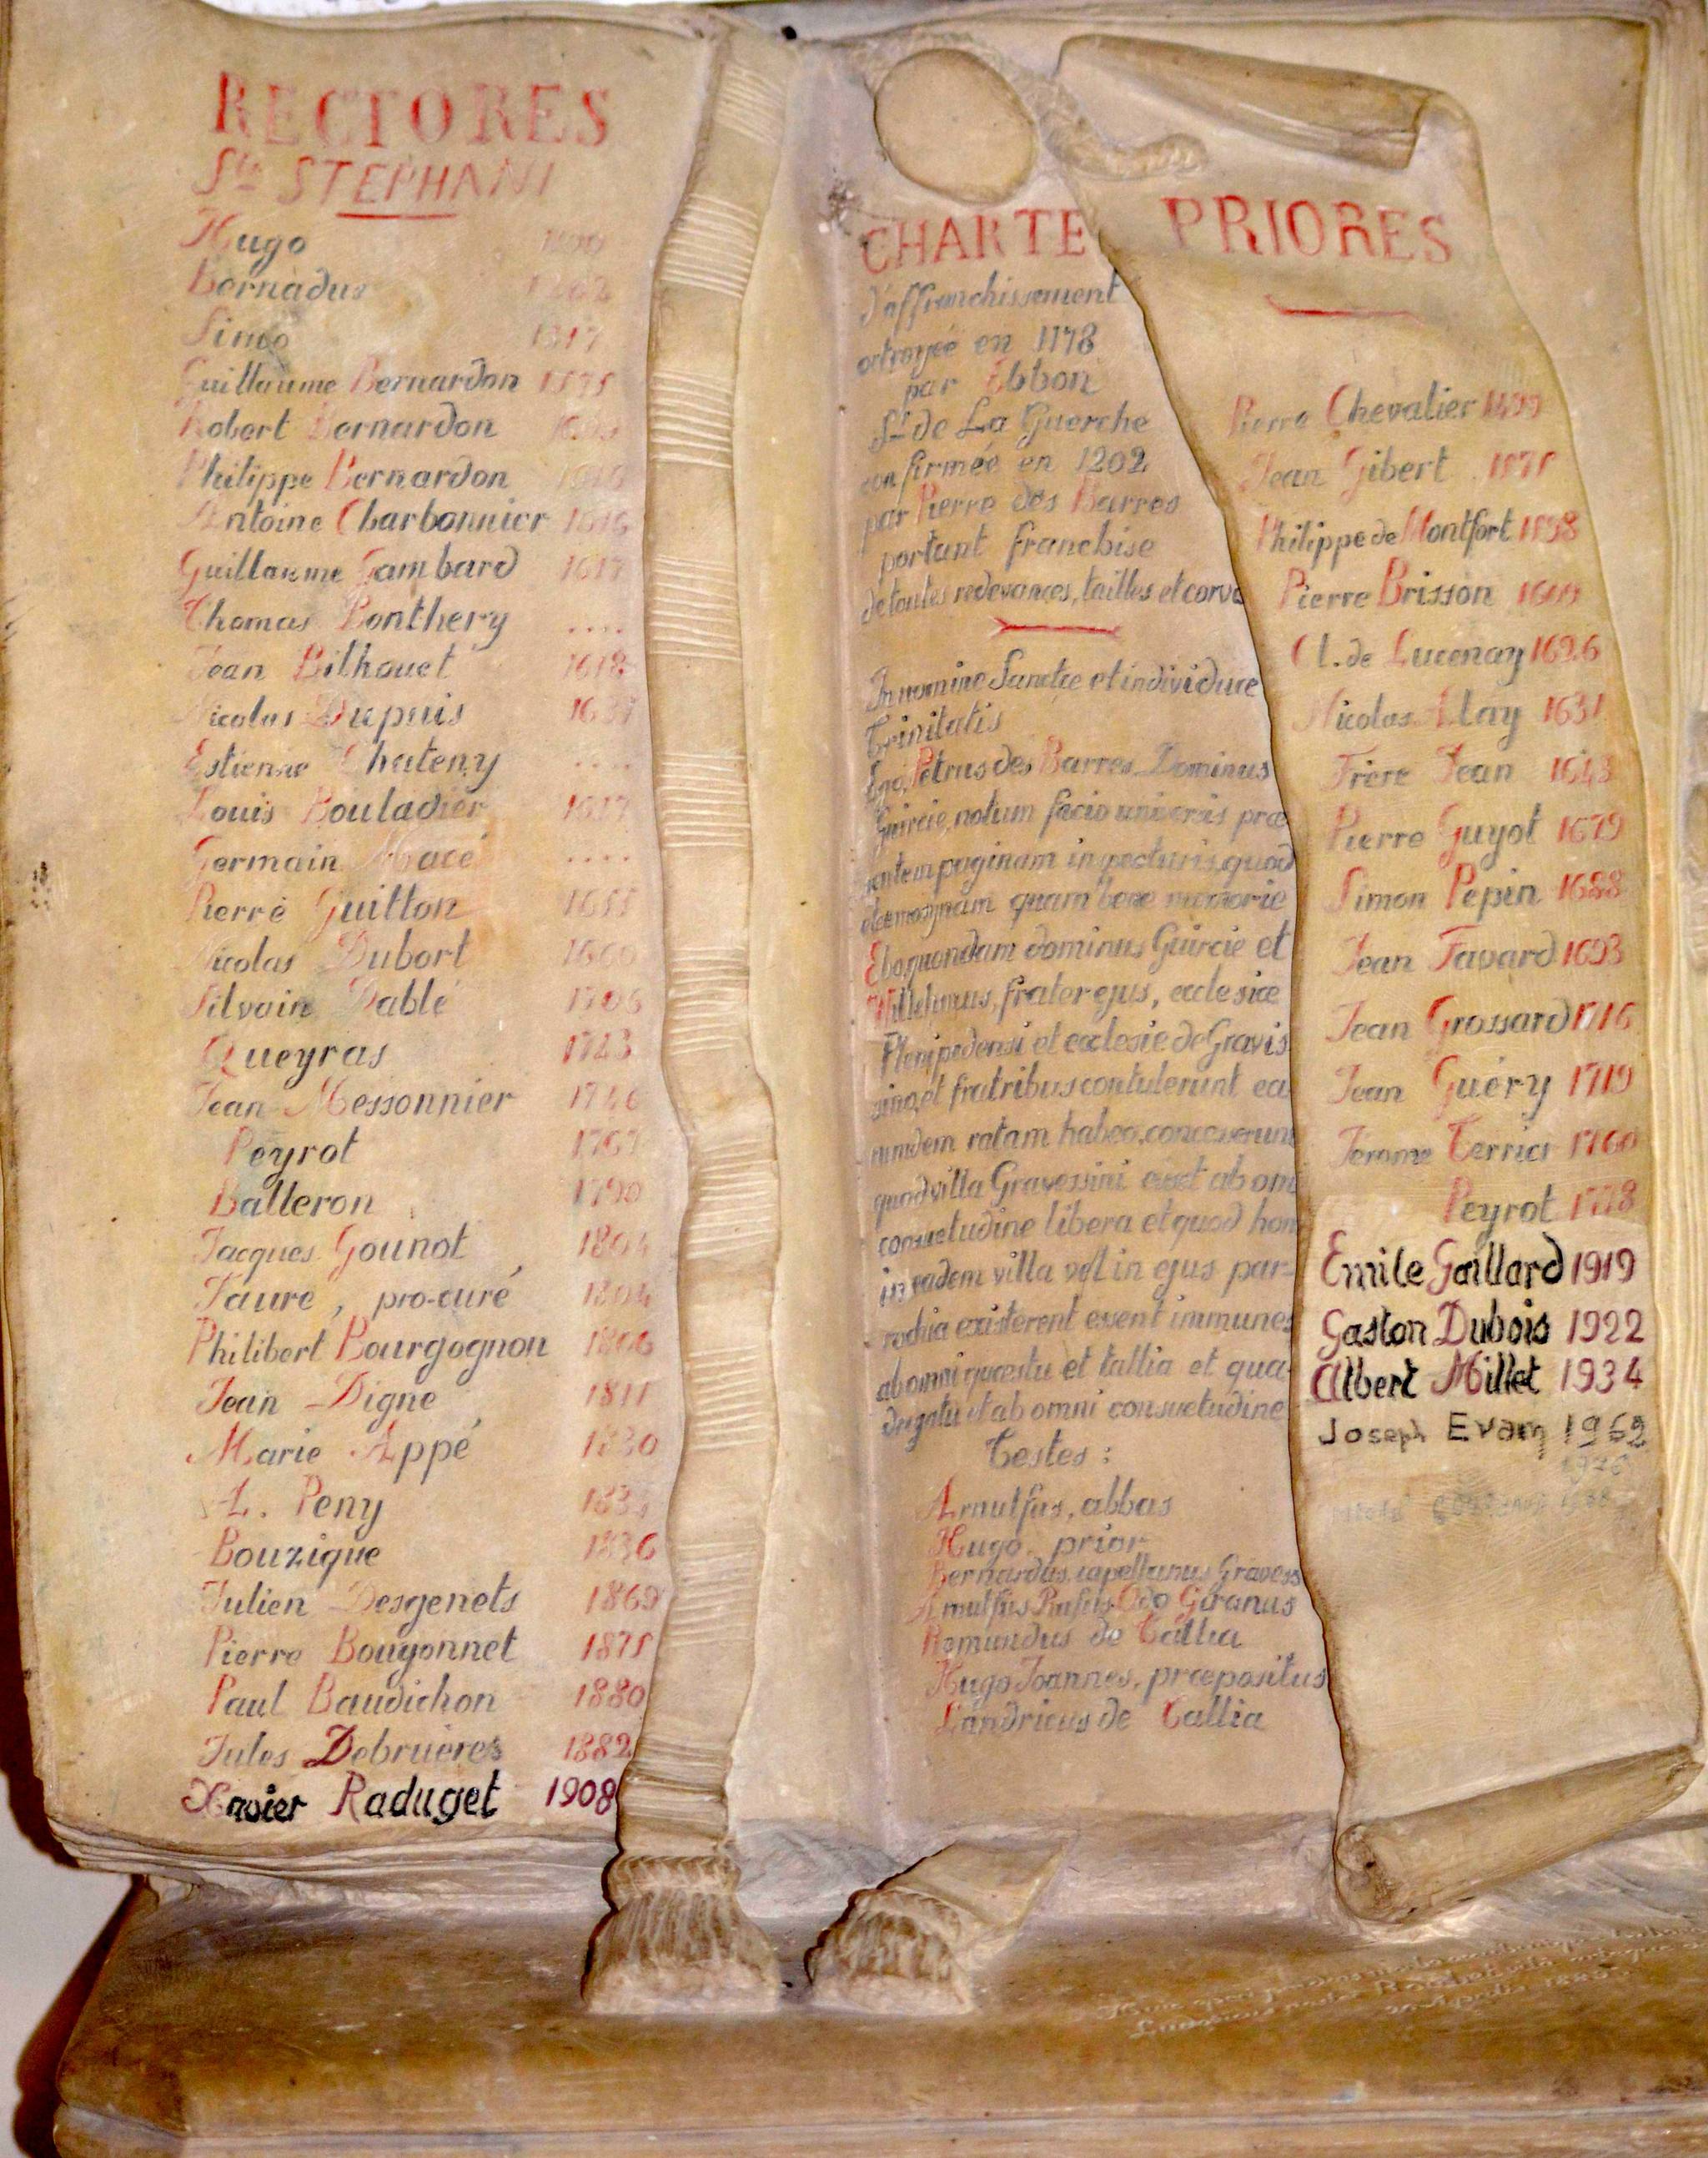 RECTORES
Sti STEPHANI
Hugo
Bernadus 1202
Simo 1317
Guillaume Bernardon 1575
Robert Bernardon
Philippe Bernardon
Antoine Charbonnier 1616
Guillaume Jambard 1617
Thomas Ponthery ....
Jean Bilhouet 1618
Nicolas Dupuis 1637
Estienne Chateny ....
Louis Bouladier
Germain Macé ....
Pierre Guitton 1655
Nicolas Dubort 1660
Silvain Dablé 1706
Queyras 1743
Jean Messonnier 1746
Peyrot 1767
Balleron 1790
Jacques Gounot 1804
Faure, pro-curé 1804
Philibert Bourgognon 1806
Jean Digne 1811
Marie Appé 1830
L. Peny
Bouzique 1836
Julien Desgenets 1869
Pierre Bougonnet 1875
Paul Baudichon 1880
Jules Debruières 1882
Xavier Raduget 1908
CHARTE
d'affranchissement
octroyée en 1178
par Ebbon
Sr de La Guerche
confirmée en 1202
par Pierre des Barres
portant franchise
de toutes redevances, tailles et corvé
In nomine Sanctæ et individuæ
Trinitatis
Ego, Petrus des Barres Dominus
Guircie, notum facio universis præ
sentem paginam inspecturis, quod
eleemosynam quam bone memorie
Ebo quondam dominus Guircie et
Willelmus, frater ejus, ecclesiæ
Plenipedensi et ecclesie de Gravis
sino, et fratribus contulerunt ea
mdem ratam habeo, concesserunt
quod villa Gravessini esset ab om
consuetudine libera et quod hom
in eadem villa vel in ejus par-
rochia existerent essent immunes
ab omni quæstu et tallia et qua-
drigatu et ab omni consuetudine
Testes :
Arnulfus, abbas
Hugo, prior
Bernardus, capellanus Gravess
Arnulfus Rufus Odo Giranus
Remundus de Tallia
Hugo Joannes, præpositus
Landricus de Tallia
PRIORES
Pierre Chevalier 1499
Jean Gibert 1575
Philippe de Montfort 1598
Pierre Brisson 1609
Cl. de Lucenay 1626
Nicolas Alay 1631
Frère Jean 1643
Pierre Guyot 1679
Simon Pepin 1688
Jean Favard 1693
Jean Grossard 1716
Jean Guéry 1719
Jerome Terrier 1760
Peyrot 1778
Emile Gaillard 1919
Gaston Dubois 1922
Albert Millet 1934
Joseph Evam 1962
1976